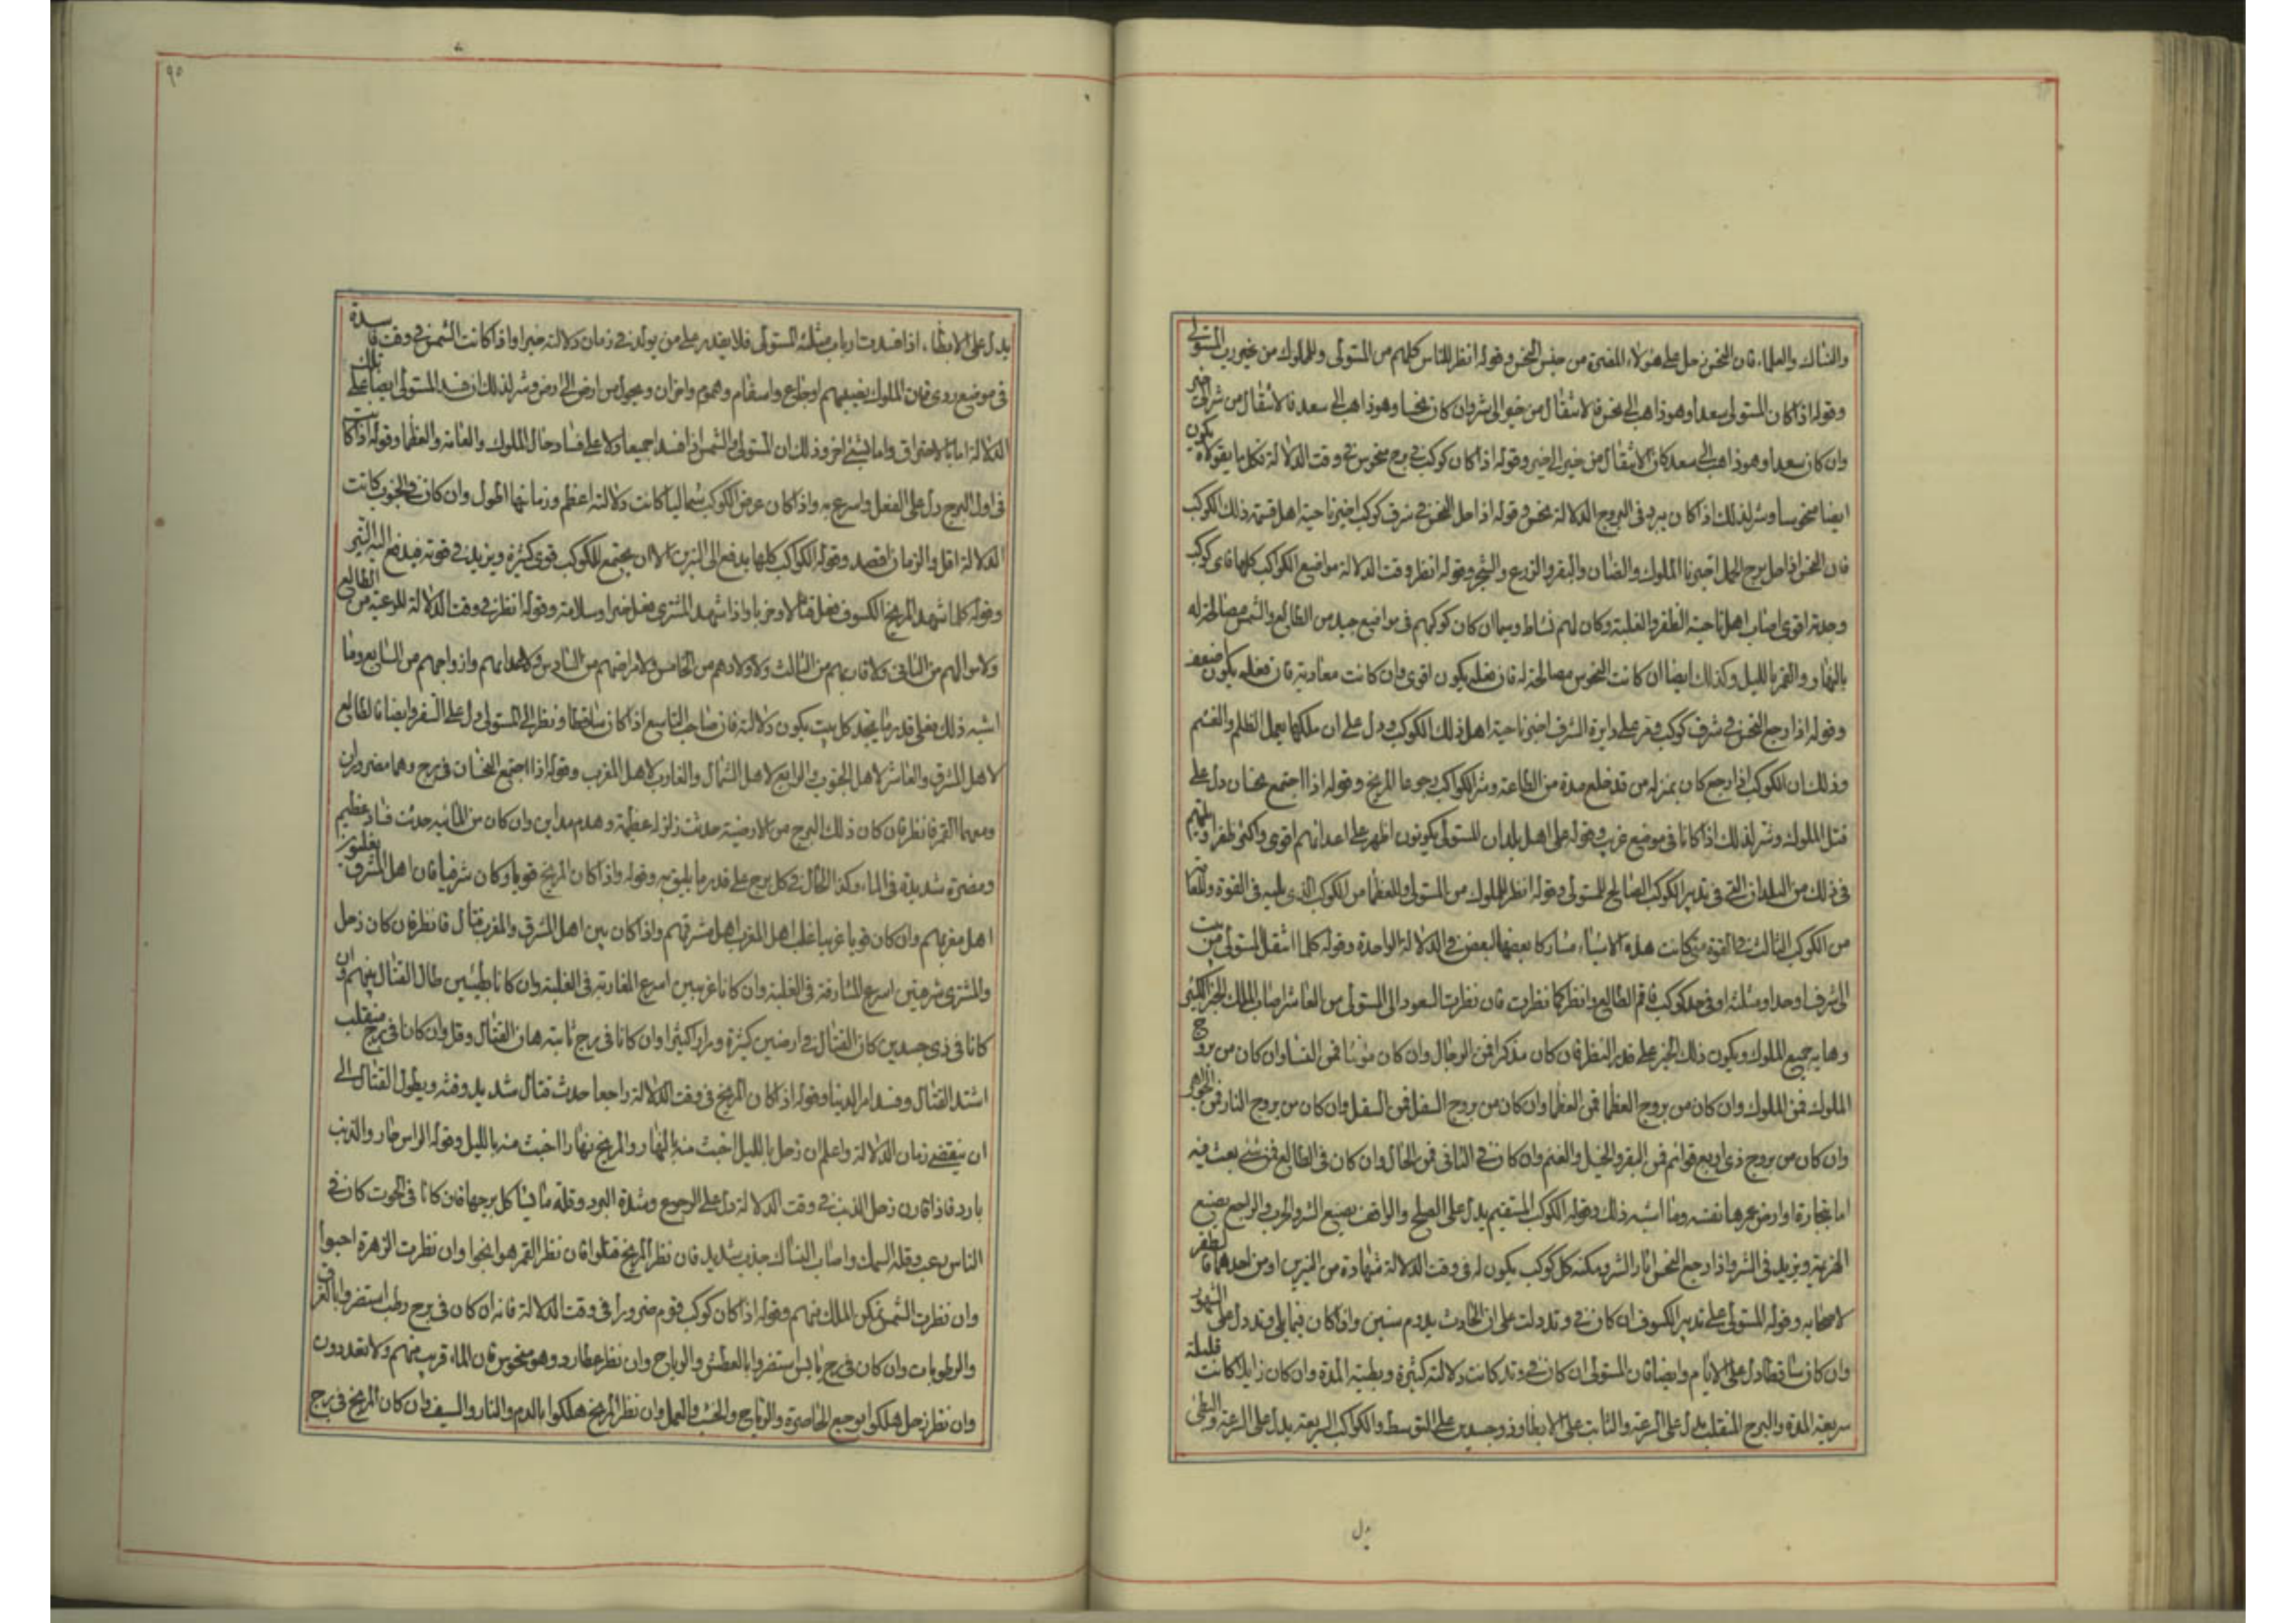 والنساك والعلماء فان النحس حل على هؤلاء المضرة من جنس النحس وقوله انظر للناس كلهم من المستولى وللملوك من غير رب المستولى
وقوله اذا كان المستولى سعدا وهو ذاهب الى نحس فالانتقال من خير الى شر وان كان نحسا وهو ذاهب الى سعد فالانتقال من شر الى خير
وان كان سعدا وهو ذاهب الى سعد كان الانتقال من خير الى خير وقوله اذا كان كوكب في برج منحوس في وقت الدلالة فكل ما يقولاه يكون
ايضا منحوسا وشر لذلك اذا كان يبرد في البروج الدلالة نحس وقوله اذا حل النحس في شرف كوكب اخبر ناحية اهل قسمة ذلك الكوكب
فان النحس اذا حل برج الحمل اخبرنا الملوك والضان والبقر والزرع والشجر وقوله انظر وقت الدلالة مواضع الكواكب كلها فاى كوكب
وجدته اقوى اصاب اهل ناحيته الظفر والغلبة وكان لهم نشاط وسيما ان كان كوكبهم في مواضع جيد من الطالع والشمس مصالحة له
بالنهار والقمر بالليل وكذلك ايضا ان كانت النحوس مصالحة له فان فعله يكون اقوى وان كانت معادية فان فعله يكون اضعف
وقوله اذا رجع النحس في شرف كوكب وقر على دايرة الشرف اخبر ناحية اهل ذلك الكوكب ودل على ان ملكها يعمل الظلم والغشم
وذلك ان الكوكب اذا رجع كان بمنزله من قد خلع مدة من الطاعة وشر الكواكب رجوعا المريخ وقوله اذا اجتمع نحسان دل على
قتل الملوك وشر لذلك اذا كانا في موضع غريب وقوله على اهل بلدان المستولى يكونون اظهر على اعدائهم اقوى واكثر ظفرا
في ذلك من البلدان التي في تدبير الكوكب الصالح للمستولى وقوله انظر للملوك من المستولى وللعظما من الكوكب الذي يليه في القوة وللعامة
من الكوكب الثالث في القوة متى كانت هذه الاشياء مشاركا بعضها لبعض في الدلالة الواحدة وقوله كلما انتقل المستولى من بيت
الى شرف او حد او مثلثه او في حد كوكب فاقم الطالع وانظر كما نظرت فان نظرت السعود الى المستولى من العاشر اصاب الملك الخير الكثير
وهابه جميع الملوك ويكون ذلك الخير على قدر النظر فان كان مذكرا فمن الرجال وان كان مؤنثا فمن النسا وان كان من بروج
الملوك فمن الملوك وان كان من بروج العظما فمن العظما وان كان من بروج السفل فمن السفل وان كان من بروج النار فمن الجواهر
وان كان من بروج ذي اربع قوائم فمن البقر والخيل والغنم وان كان في الثاني فمن المال وان كان في الطالع فمن شئ يعث فيه
اما بتجارة او ارض يعمرها نفسه وما اشبه ذلك وقوله الكوكب المستقيم يدل على الصلح والواقف يصنع الشر والحرب والراجع يصنع
الهزيمة ويزيد في الشر واذا رجع النحس اثار الشر ومكنه كل كوكب يكون له في وقت الدلالة شهادة من النيرين او من احدهما فالظفر
لاصحابه وقوله المستولى على تدبير الكسوف ان كان في وتد دلت على ان الحادث يدوم سنين واذا كان فيما يلي وتد دل على الشهور
وان كان ساقطا دل على الايام وايضا فان المستولى ان كان في وتد كانت دلالته كثيرة وبطيئة المدة وان كان زايلا كانت قليلة
سريعة المدة والبرج المنقلب يدل على السرعة والثابت على الابطا وذو جسدين على التوسط والكواكب السريعة يدل على السرعة والبطى
يدل
٩٥
يدل على الابطاء اذا فسدت ارباب مثلثة المستولى فلا يقدر على من يولد في زمان دلالته خيرا واذا كانت الشمس في وقت فاسدة
في موضع روى فان الملوك يصيبهم اوجاع واسقام وهموم واحزان ويحول من ارض الى ارض وشر لذلك ان فسد المستولى ايضا على تلك
الدلالة اما بالاحتراق واما بشئ اخر وذلك ان المستولى والشمس اذا فسدا جميعا دلا على فساد حال الملوك والعامة والعظما وقوله اذا كانت
في اول البرج دل على الفعل واسرع به واذا كان عرض الكوكب شماليا كانت دلالته اعظم وزمانها اطول وان كان في الجنوب كانت
الدلالة اقل والزمان اقصد وقوله الكواكب كلها يدفع الى النيرين الا ان يجتمع للكوكب قوى كثيرة ويزيد في قوته فيدفع اليه النير
وقوله كلما شهد المريخ الكسوف فعل قتالا وحربا واذا شهد المشتري فعل خيرا وسلامة وقوله انظر في وقت الدلالة للرعية من الطالع
ولاموالهم من الثاني ولاقاربهم من الثالث ولاولادهم من الخامس ولامراضهم من السادس ولاعدائهم وازواجهم من السابع وما
اشبه ذلك فعلى قدر ما يجد كل بيت يكون دلالته فان صاحب التاسع اذا كان ساقطا ونظر الى المستولى دل على السفر وايضا فالطالع
لاهل المشرق والعاشر لاهل الجنوب والرابع لاهل الشمال والغارب لاهل المغرب وقوله اذا اجتمع النحسان في برج وهما مضروران
ومعهما القمر فانظر فان كان ذلك البرج من الارضية حدثت زلزلة عظيمة وهدم مداين وان كان من المائية حدثت فساد عظيم
ومضرة شديدة في الماء وكذا الحال في كل برج على قدر ما يليق به وقوله واذا كان المريخ قويا وكان شرقيا فان اهل المشرق يغلبون
اهل مغربهم وان كان قويا غربيا غلب اهل المغرب اهل مشرقهم واذا كان بين اهل المشرق والمغرب قتال فانظر فان كان زحل
والمشترى شرقيين اسرع المشارقة في الغلبة وان كانا غربيين اسرع المغاربة في الغلبة وان كانا بطيئين طال القتال بينهم وان
كانا في ذي جسدين كان القتال في ارضين كثيرة ومرارا كثيرا وان كانا في برج ثابتة هان القتال وقل وان كانا في برج منقلب
اشتد القتال وفسد امر الدنيا وقوله اذا كان المريخ في وقت الدلالة راجعا حدث قتال شديد وفتنه ويطول القتال الى
ان ينقضى زمان الدلالة واعلم ان زحل بالليل اخبث منه بالنهار والمريخ نهارا اخبث منه بالليل وقوله الراس حار والذنب
بارد فاذا قارن زحل الذنب في وقت الدلالة دل على الرجوع وشدة البرد وقلة ما فيا كل برجها فان كانا في الحوت كان في
الناس رعب وقلة السمك واصاب النساك جذب شديد فان نظر المريخ قتلوا فان نظر القمر هوا بنجوا وان نظرت الزهرة احبوا
وان نظرت الشمس تمكن الملك بينهم وقوله اذا كان كوكب قوم ضرورا في وقت الدلالة فانه ان كان في برج رطب استضروا بالغرق
والرطوبات وان كان في برج يابس استضروا بالعطش والرياح وان نظر عطارد وهو منحوس فان الماء قريب منهم ولا تعددون
وان نظر زحل هلكوا بوجع الخاصرة والرياح والخشب والعمل وان نظر المريخ هلكوا بالدم والنار والسيف وان كان المريخ في برج